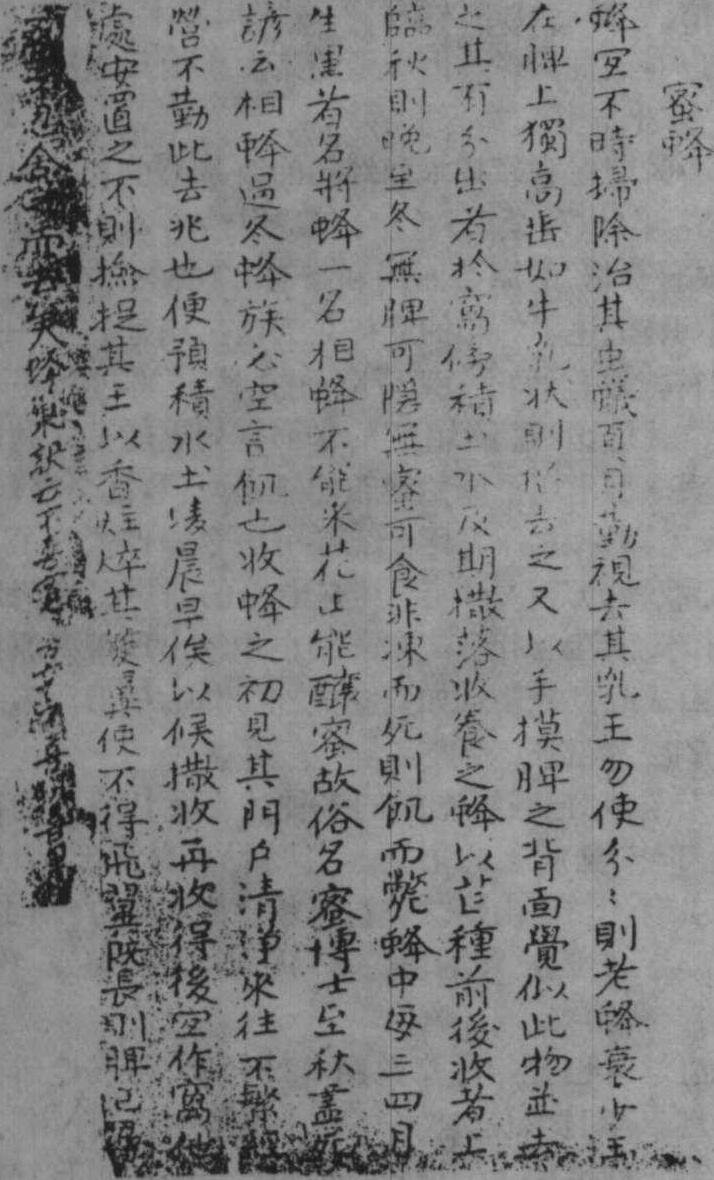 蜜蜂
蜂室不時掃除治其虫蟻百日勤視去其乳王勿使分〻則老蜂衰少王
在脾上獨高歯如牛乳状則拾去之又以手摸脾之背面覺似此物並去
之其有分出者於窩傍積土水及期撒落收養之蜂以芒種前後收者上
臨秋則晩至冬無脾可隱無蜜可食非凍而死則飢而斃蜂中每三四月
生黒者名將蜂一名相蜂不能采花止能釀蜜故俗名蜜博士至秋盡死
諺云相蜂過冬蜂族必空言飢也收蜂之初見其門戶清淨來往不繁經
營不勤此去兆也便預積水土凌晨早俟以候撒收再收得後室作窩他
處安置之不則撿捉其王以香炷焠其雙翼使不得飛翼既長則脾已